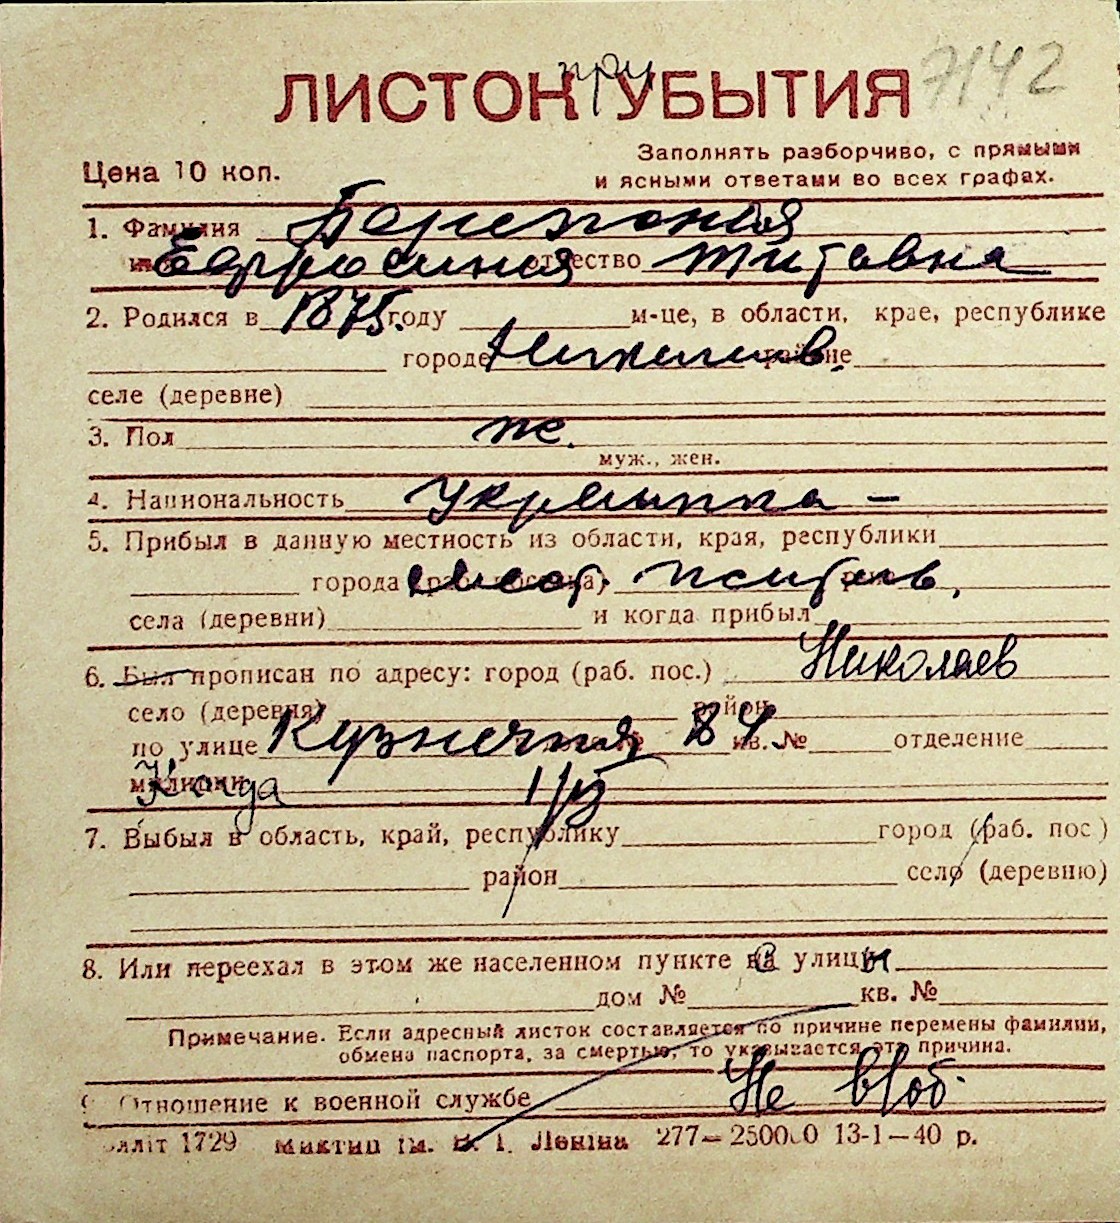 7142
ЛИСТОК при УБЫТИЯ
Заполнять разборчиво, с прямыми
Цена 10 коп.
и ясными ответами во всех графах.
1. Фамилия
Ефросиния отчество Титовна
2. Родился в 1875 году м-це, в области, крае, республике
городе районе
селе (деревне)
3. Пол ж.
муж., жен.
4. Национальность украинка –
5. Прибыл в данную местность из области, края, республики
города
села (деревни) и когда прибыл
6. Был прописан по адресу: город (раб. пос.) Николаев
село (деревня) район
по улице Кузнечная 84 кв. № отделение
милиции Когда
7. Выбыл в область, край, республику город (раб. пос)
район село (деревню)
8. Или переехал в этом же населенном пункте с улицы
дом № кв. №
Примечание. Если адресный листок составляется по причине перемены фамилии,
обмена паспорта, за смертью, то указывается эта причина.
9. Отношение к военной службе Не в/об.
1729 ім. В. І. Леніна 277—250000 13-1—40 р.